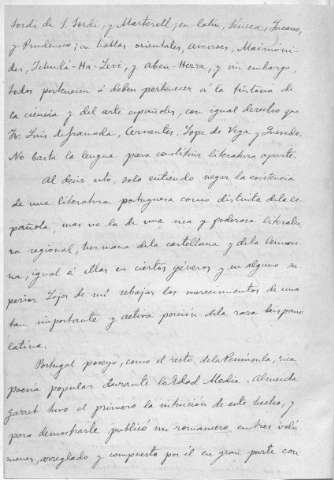 Jordi de S. Jordi, y Martorell; en latin, Séneca, Lucano,
y Prudencio; en hablas orientales, Averroes, Maimóni-
des, Jehudá-Ha-Leví, y Aben-Hezra, y sin embargo,
todos pertenecen ó deben pertenecer á la historia de
la ciencia y del arte españoles, con igual derecho que
Fr. Luis de Granada, Cervantes, Lope de Vega y Quevedo.
No basta la lengua para constituir literatura aparte.
Al decir esto, solo entiendo negar la existencia
de una literatura portuguesa como distinta de la es-
pañola, mas no la de una rica y poderosa literatu-
ra regional, hermana de la castellana y de la lemosi-
na, igual á ellas en ciertos géneros y en alguno su-
perior. Lejos de mí rebajar los merecimientos de una
tan importante y activa porción de la raza hispano
latina.
Portugal poseyó, como el resto de la Península, rica
poesía popular durante la Edad Media. Almeida
Garret tuvo el primero la intuición de este hecho, y
para demostrarle publicó un romancero, en tres volú-
menes, arreglado y compuesto por él en gran parte con